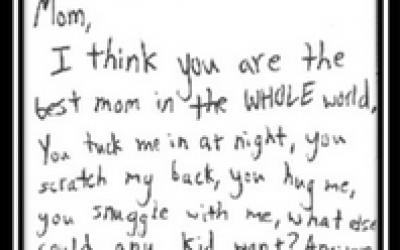 Mom,
I think you are the
best mom in the WHOLE world.
You tuck me in at night, you
scratch my back, you hug me,
you snuggle with me, what else
could any kid want?